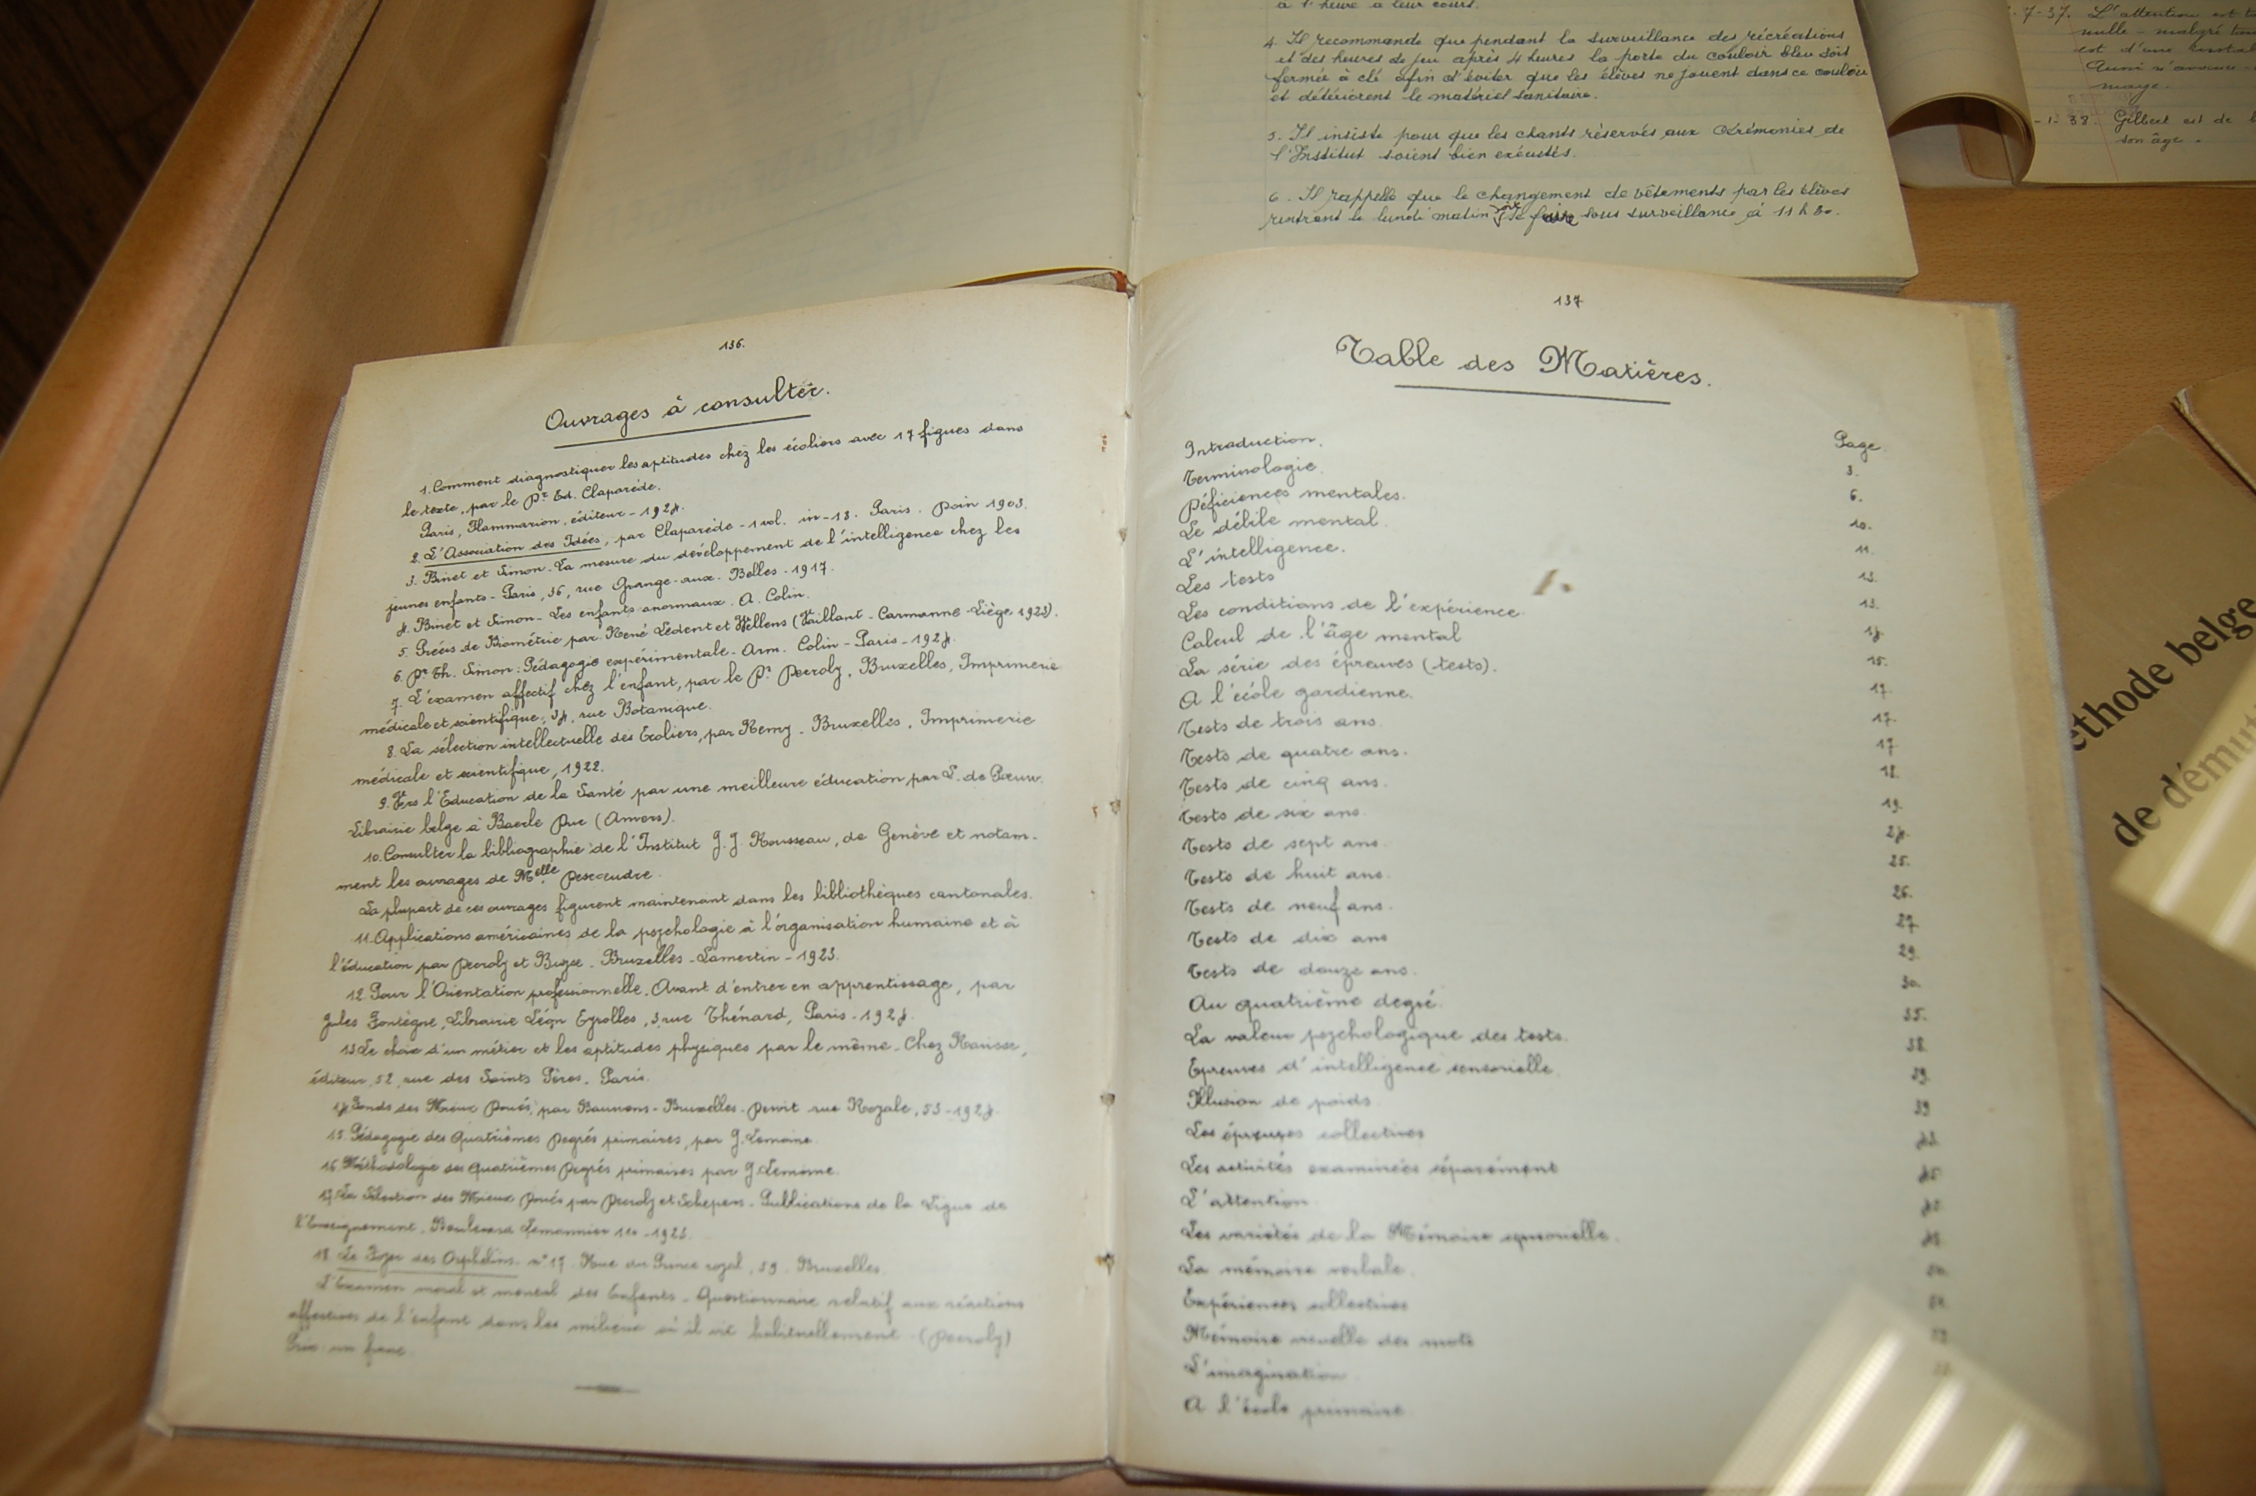 à l'heure à leur cours.
4. Il recommande que pendant la surveillance des récréations
et des heures de jeu après 4 heures la porte du couloir bleu soit
fermée à clé afin d'éviter que les élèves ne jouent dans ce couloir
et détériorent le matériel sanitaire.
5. Il insiste pour que les chants réservés aux cérémonies de
l'Institut soient bien exécutés.
6. Il rappelle que le changement de vêtements par les élèves
rentrant le lundi matin soit se faire sous surveillance à 11 h 30.
7-37. L'attention est
nulle - malgré
est d'une
maye.
-1-38. Gilbert est de
son âge.
136.
Ouvrages à consulter.
1. Comment diagnostiquer les aptitudes chez les écoliers avec 17 figues dans
le texte, par le Dr Ed. Claparède.
Paris, Flammarion, éditeur - 1924.
2. L'Association des Idées, par Claparède - 1 vol. in-18. Paris. Doin 1903.
3. Binet et Simon. La mesure du développement de l'intelligence chez les
jeunes enfants - Paris, 36, rue Grange-aux-Belles - 1917.
4. Binet et Simon - Les enfants anormaux. A. Colin.
5. Précis de Biométrie par René Ledent et Wellens (Vaillant-Carmanne-Liège, 1923).
6. Dr Th. Simon: Pédagogie expérimentale - Arm. Colin - Paris - 1924.
7. L'examen affectif chez l'enfant, par le Dr Decroly, Bruxelles, Imprimerie
médicale et scientifique, 34, rue Botanique.
8. La sélection intellectuelle des Ecoliers, par Remy - Bruxelles, Imprimerie
médicale et scientifique, 1922.
9. Vers l'Education de la Santé par une meilleure éducation par L. de Paeuw.
Librairie belge à Baerle Duc (Anvers).
10. Consulter la bibliographie de l'Institut J. J. Rousseau, de Genève et notam-
ment les ouvrages de Melle Descoeudre.
La plupart de ces ouvrages figurent maintenant dans les bibliothèques cantonales.
11. Applications américaines de la psychologie à l'organisation humaine et à
l'éducation par Decroly et Buyse - Bruxelles - Lamertin - 1923.
12. Pour l'Orientation professionnelle. Avant d'entrer en apprentissage, par
Jules Fontègne, Librairie Léon Eyrolles, 3, rue Thénard, Paris - 1924.
13. Le choix d'un métier et les aptitudes physiques par le même - Chez
éditeur, 52, rue des Saints Pères. Paris.
14. Fonds des Mieux Doués, par Bauwens - Bruxelles - Dewit rue Royale, 53 - 1924.
15. Pédagogie des Quatrièmes Degrés primaires, par G. Lemoine.
16. Méthodologie des Quatrièmes Degrés primaires par G. Lemoine.
17. La Sélection des Mieux Doués par Decroly et Schepens - Publications de la Ligue de
l'Enseignement - Boulevard Lemonnier 110 - 1923.
18. Le Foyer des Orphelins - n° 17. Rue du Prince royal, 59. Bruxelles.
L'Examen moral et mental des Enfants - Questionnaire relatif aux réactions
affectives de l'enfant dans les milieux où il vit habituellement (Decroly)
Prix: un franc
137
Table des Matières.
Page
Introduction. 3.
Terminologie. 6.
Déficiences mentales. 10.
Le débile mental. 11.
L'intelligence. 13.
Les tests 13.
Les conditions de l'expérience 14.
Calcul de l'âge mental 15.
La série des épreuves (tests). 17.
A l'école gardienne. 17.
Tests de trois ans. 17
Tests de quatre ans. 18.
Tests de cinq ans. 19.
Tests de six ans. 24.
Tests de sept ans. 25.
Tests de huit ans. 26.
Tests de neuf ans. 27
Tests de dix ans 29.
Tests de douze ans. 30.
Au quatrième degré. 35.
La valeur psychologique des tests. 38.
Epreuves d'intelligence sensorielle. 39.
Illusion de poids. 39
Les épreuves collectives
Les activités examinées séparément
L'attention
Les variétés de la Mémoire sensorielle.
La mémoire verbale.
Expériences collectives
Mémoire visuelle des mots
L'imagination
A l'école primaire.
éthode belge
de démut